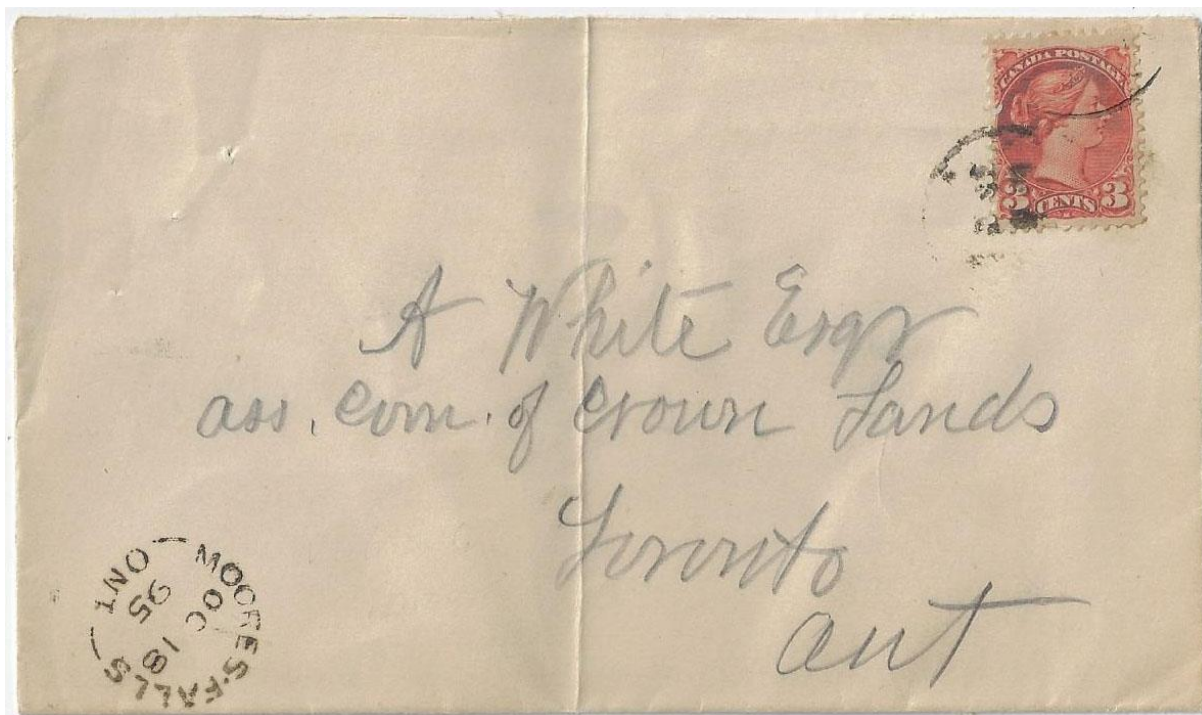 CANADA POSTAGE
3 CENTS 3
A White Esqr
ass. Com. of Crown Lands
Toronto
Ont
MOORES-FALLS
OC 18
95
ONT